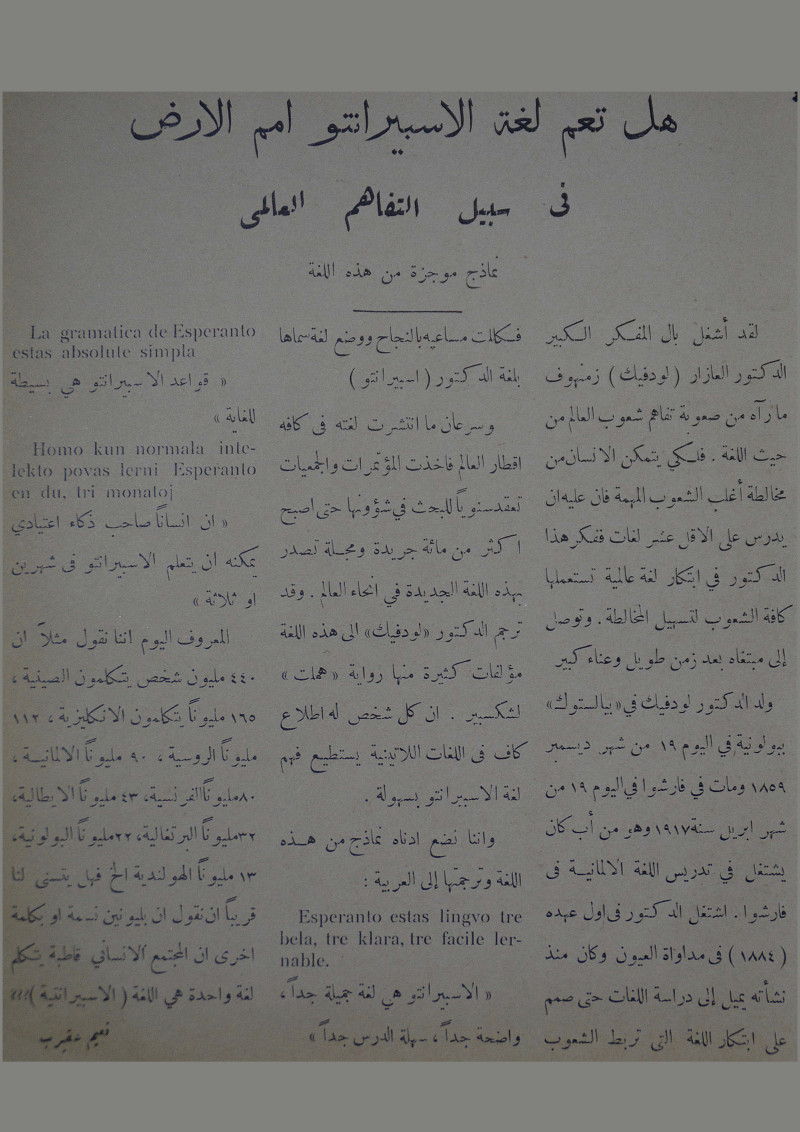 هل تعم لغة الاسبيرانتو امم الارض
في سبيل التفاهم العالمي
نماذج موجزة من هذه اللغة
لقد أشغل بال المفكر الكبير
الدكتور العازار ( لودفيك ) زمنهوف
ما رآه من صعوبة تفاهم شعوب العالم من
حيث اللغة . فلكي يتمكن الانسان من
مخالطة أغلب الشعوب المهمة فان عليه ان
يدرس على الاقل عشر لغات ففكر هذا
الدكتور في ابتكار لغة عالمية تستعملها
كافة الشعوب لتسهيل المخالطة . وتوصل
إلى مبتغاه بعد زمن طويل وعناء كبير
ولد الدكتور لودفيك في «بيالستوك»
ببولونية في اليوم ١٩ من شهر ديسمبر
١٨٥٩ ومات في فارشوا في اليوم ١٩ من
شهر ابريل سنة ١٩١٧ وهو من أب كان
يشتغل في تدريس اللغة الالمانية فى
فارشوا . اشتغل الدكتور فى اول عهده
( ١٨٨٤ ) فى مداواة العيون وكان منذ
نشأته يميل إلى دراسة اللغات حتى صمم
على ابتكار اللغة التى تربط الشعوب
فكللت مساعيه بالنجاح ووضع لغة سماها
بلغة الدكتور ( اسبيرانتو )
وسرعان ما انتشرت لغته فى كافه
اقطار العالم فاخذت المؤتمرات والجمعيات
تعقد سنوياً للبحث في شؤونها حتى اصبح
اكثر من مائة جريدة ومجلة تصدر
بهذه اللغة الجديدة في انحاء العالم . وقد
ترجم الدكتور «لودفيك» الى هذه اللغة
مؤلفات كثيرة منها رواية « هملت »
لشكسبير . ان كل شخص له اطلاع
كاف فى اللغات اللاتينية يستطيع فهم
لغة الاسبرانتو بسهولة .
واننا نضع ادناه نماذج من هذه
اللغة وترجمتها إلى العربية :
Esperanto estas lingvo tre
bela, tre klara, tre facile ler-
nable.
« الاسبرانتو هي لغة جميلة جداً ،
واضحة جداً ، سهلة الدرس جداً »
La gramatica de Esperanto
estas absolute simpla
« قواعد الاسبيرانتو هي بسيطة
للغاية »
Homo kun normala inte-
lekto povas lerni Esperanto
en du, tri monatoj
« ان انساناً صاحب ذكاء اعتيادي
يمكنه ان يتعلم الاسبيرانتو فى شهرين
او ثلاثة »
المعروف اليوم اننا نقول مثلاً ان
٤٤٠ مليون شخص يتكلمون الصينية ،
١٦٥ مليوناً يتكلمون الانكليزية ، ١١٢
مليوناً الروسية ، ٩٠ مليوناً الالمانية ،
٨٠ مليوناً الفرنسية، ٤٣ مليوناً الايطالية،
٣٢ مليوناً البرتغالية، ٢٢ مليوناً البولونية،
١٣ مليوناً الهولندية الخ فهل يتسنى لنا
قريباً ان نقول ان بليونين نسمة او بكلمة
اخرى ان المجتمع الانساني قاطبة يتكلم
لغة واحدة هي اللغة ( الاسبيرانتية )؟؟؟
نعيم